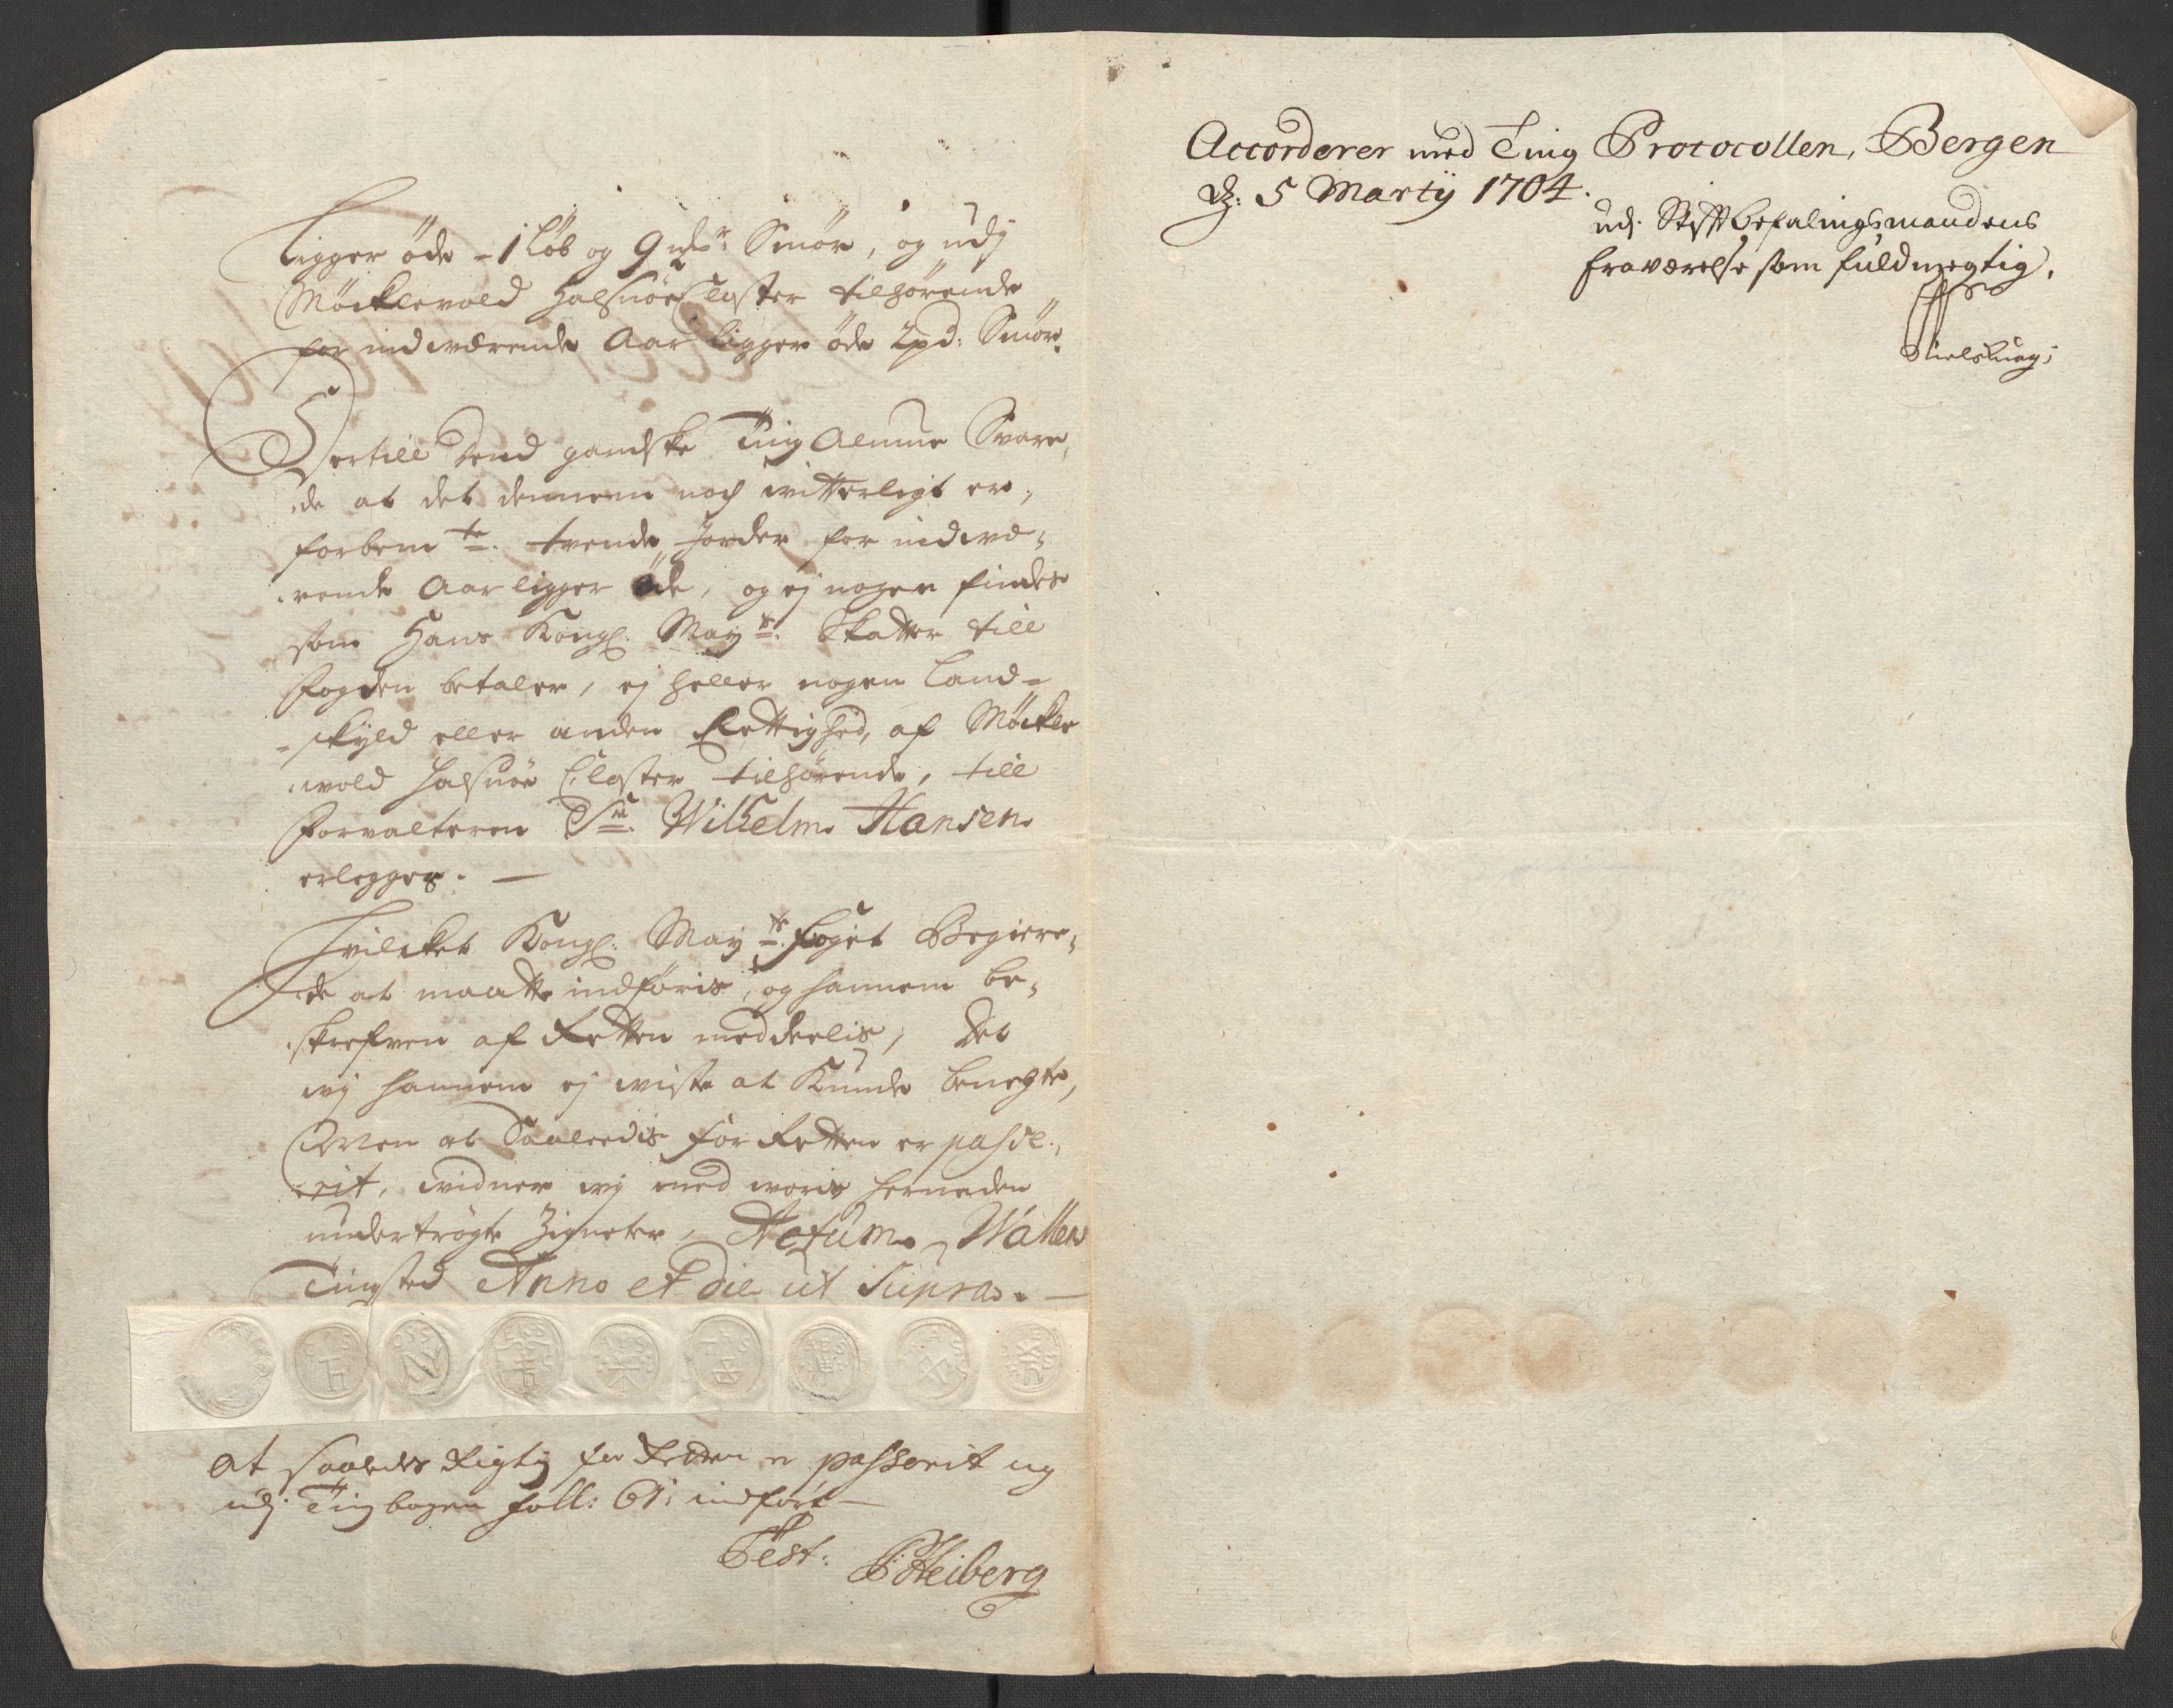 Ligger öde - 1 Löb og 9 mkr: Smör, og udj
Möcklevold Halsnöe Closter tilhörende
for indværende Aar ligger öde 2pd: Smör.
Dertill dend gandske Ting Almue Svare,
de at det dennem noch witterligt er,
forbemte. tvende Jorder for indvæ,
rende Aar ligger öde, og ej nogen findes
som Hans Kongl. Mayts. Skatter till
Fogden betaler, ej heller nogen Land-
skyld eller anden Rettighed, af Möckle
wold Halsnöe Closter tilhörende, till
Forvalteren Sr. Wilhelm Hansen
erlegges. —
Hvilcket Kongl. Mayts. Foget Begiere,
de at maatte indföris, og hannem be,
skrefven af Retten meddeelis, Det
wj hannem ej wiste at Kunde benegte,
Men at Saaleedis for Retten er passe,
rit, widner wj med woris herneden
undertrögte Zigneter, Actum Wallen
Tingsted Anno et die ut Supra. —
At saaledes Rigtig for Retten er passerit og
udj Tingbogen foll: 61: indfört —
Test: Heiberg
Accorderer med Ting Protocollen, Bergen
d: 5 Martij 1704.
udj Stiftbefalingsmandens
fraværelse som fuldmegtig,